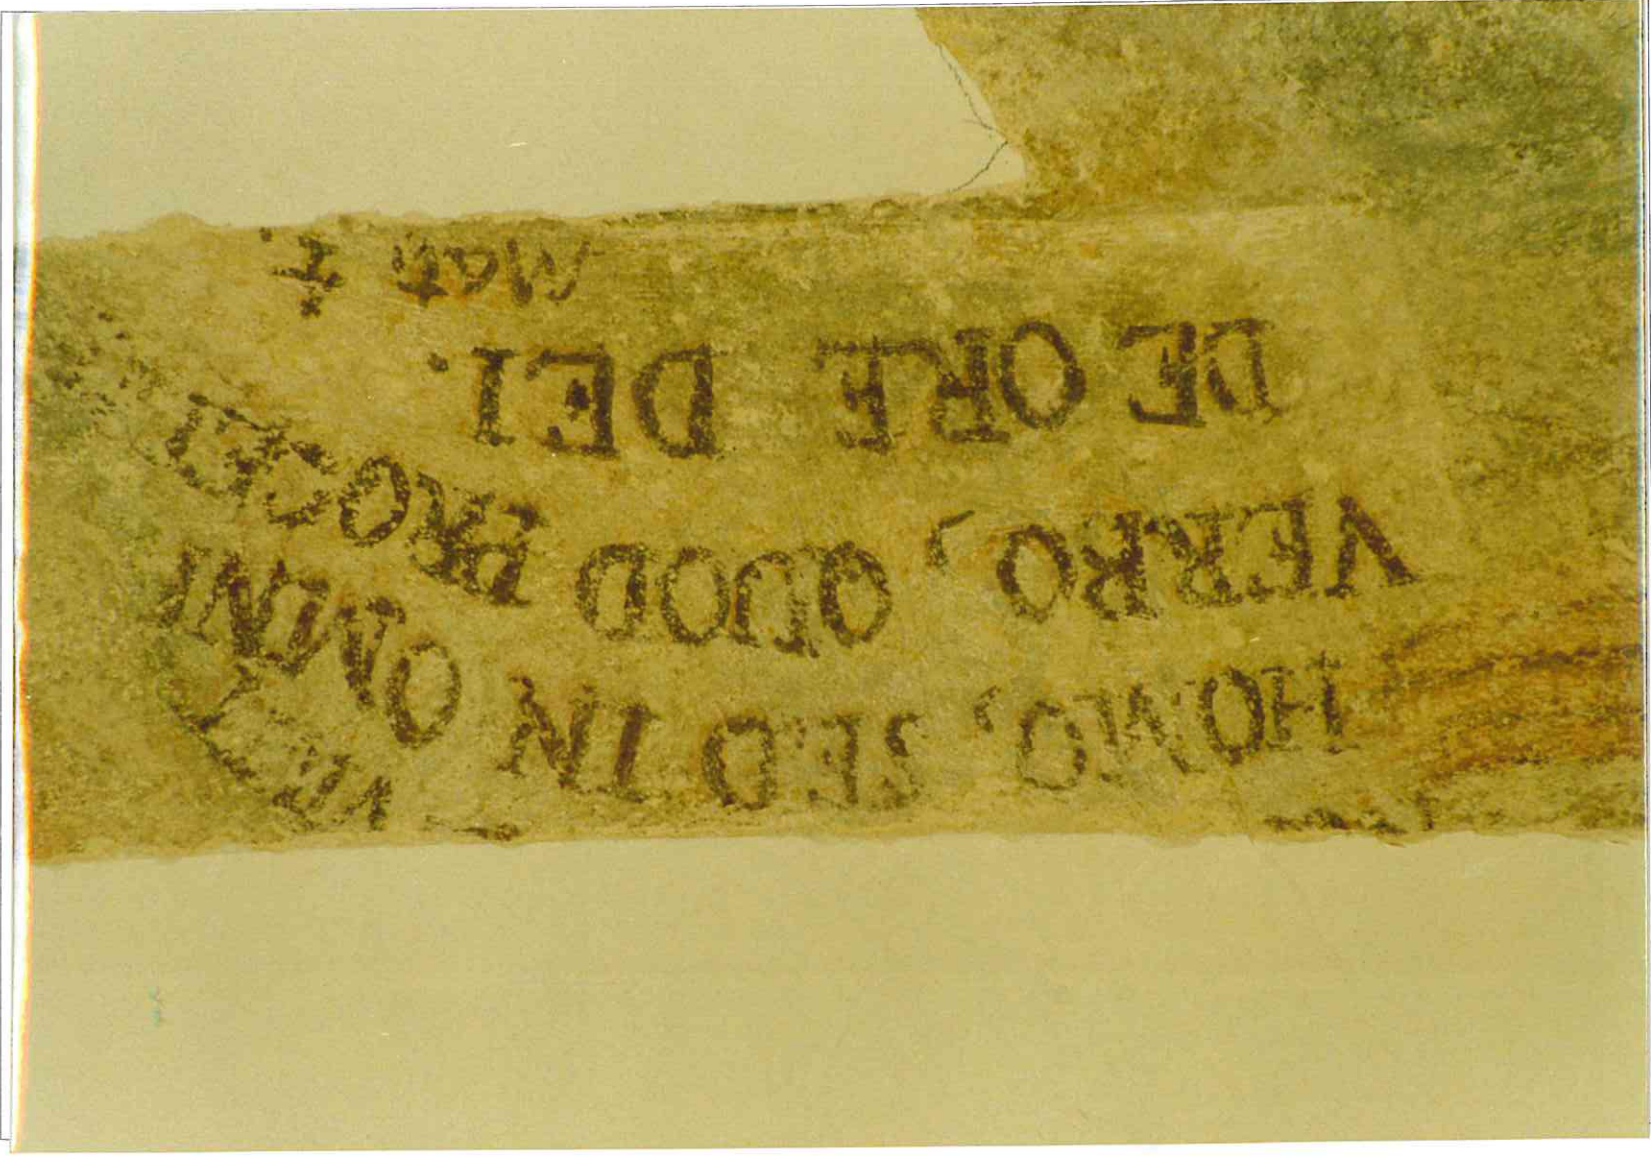 HOMO, SED IN OMNI
VERBO, QUOD PROCED
DE ORE DEI.
Matt 4.